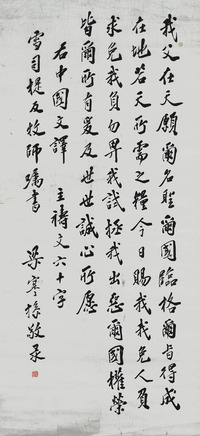 我父在天願爾名聖爾國臨格爾旨得成
在地若天所需之糧今日賜我我免人負
求免我負勿畀我試拯我出惡爾國權榮
皆爾所有爰及世世誠心所願
右中國文譯 主禱文六十字
雪司提反牧師囑書 梁寒操敬